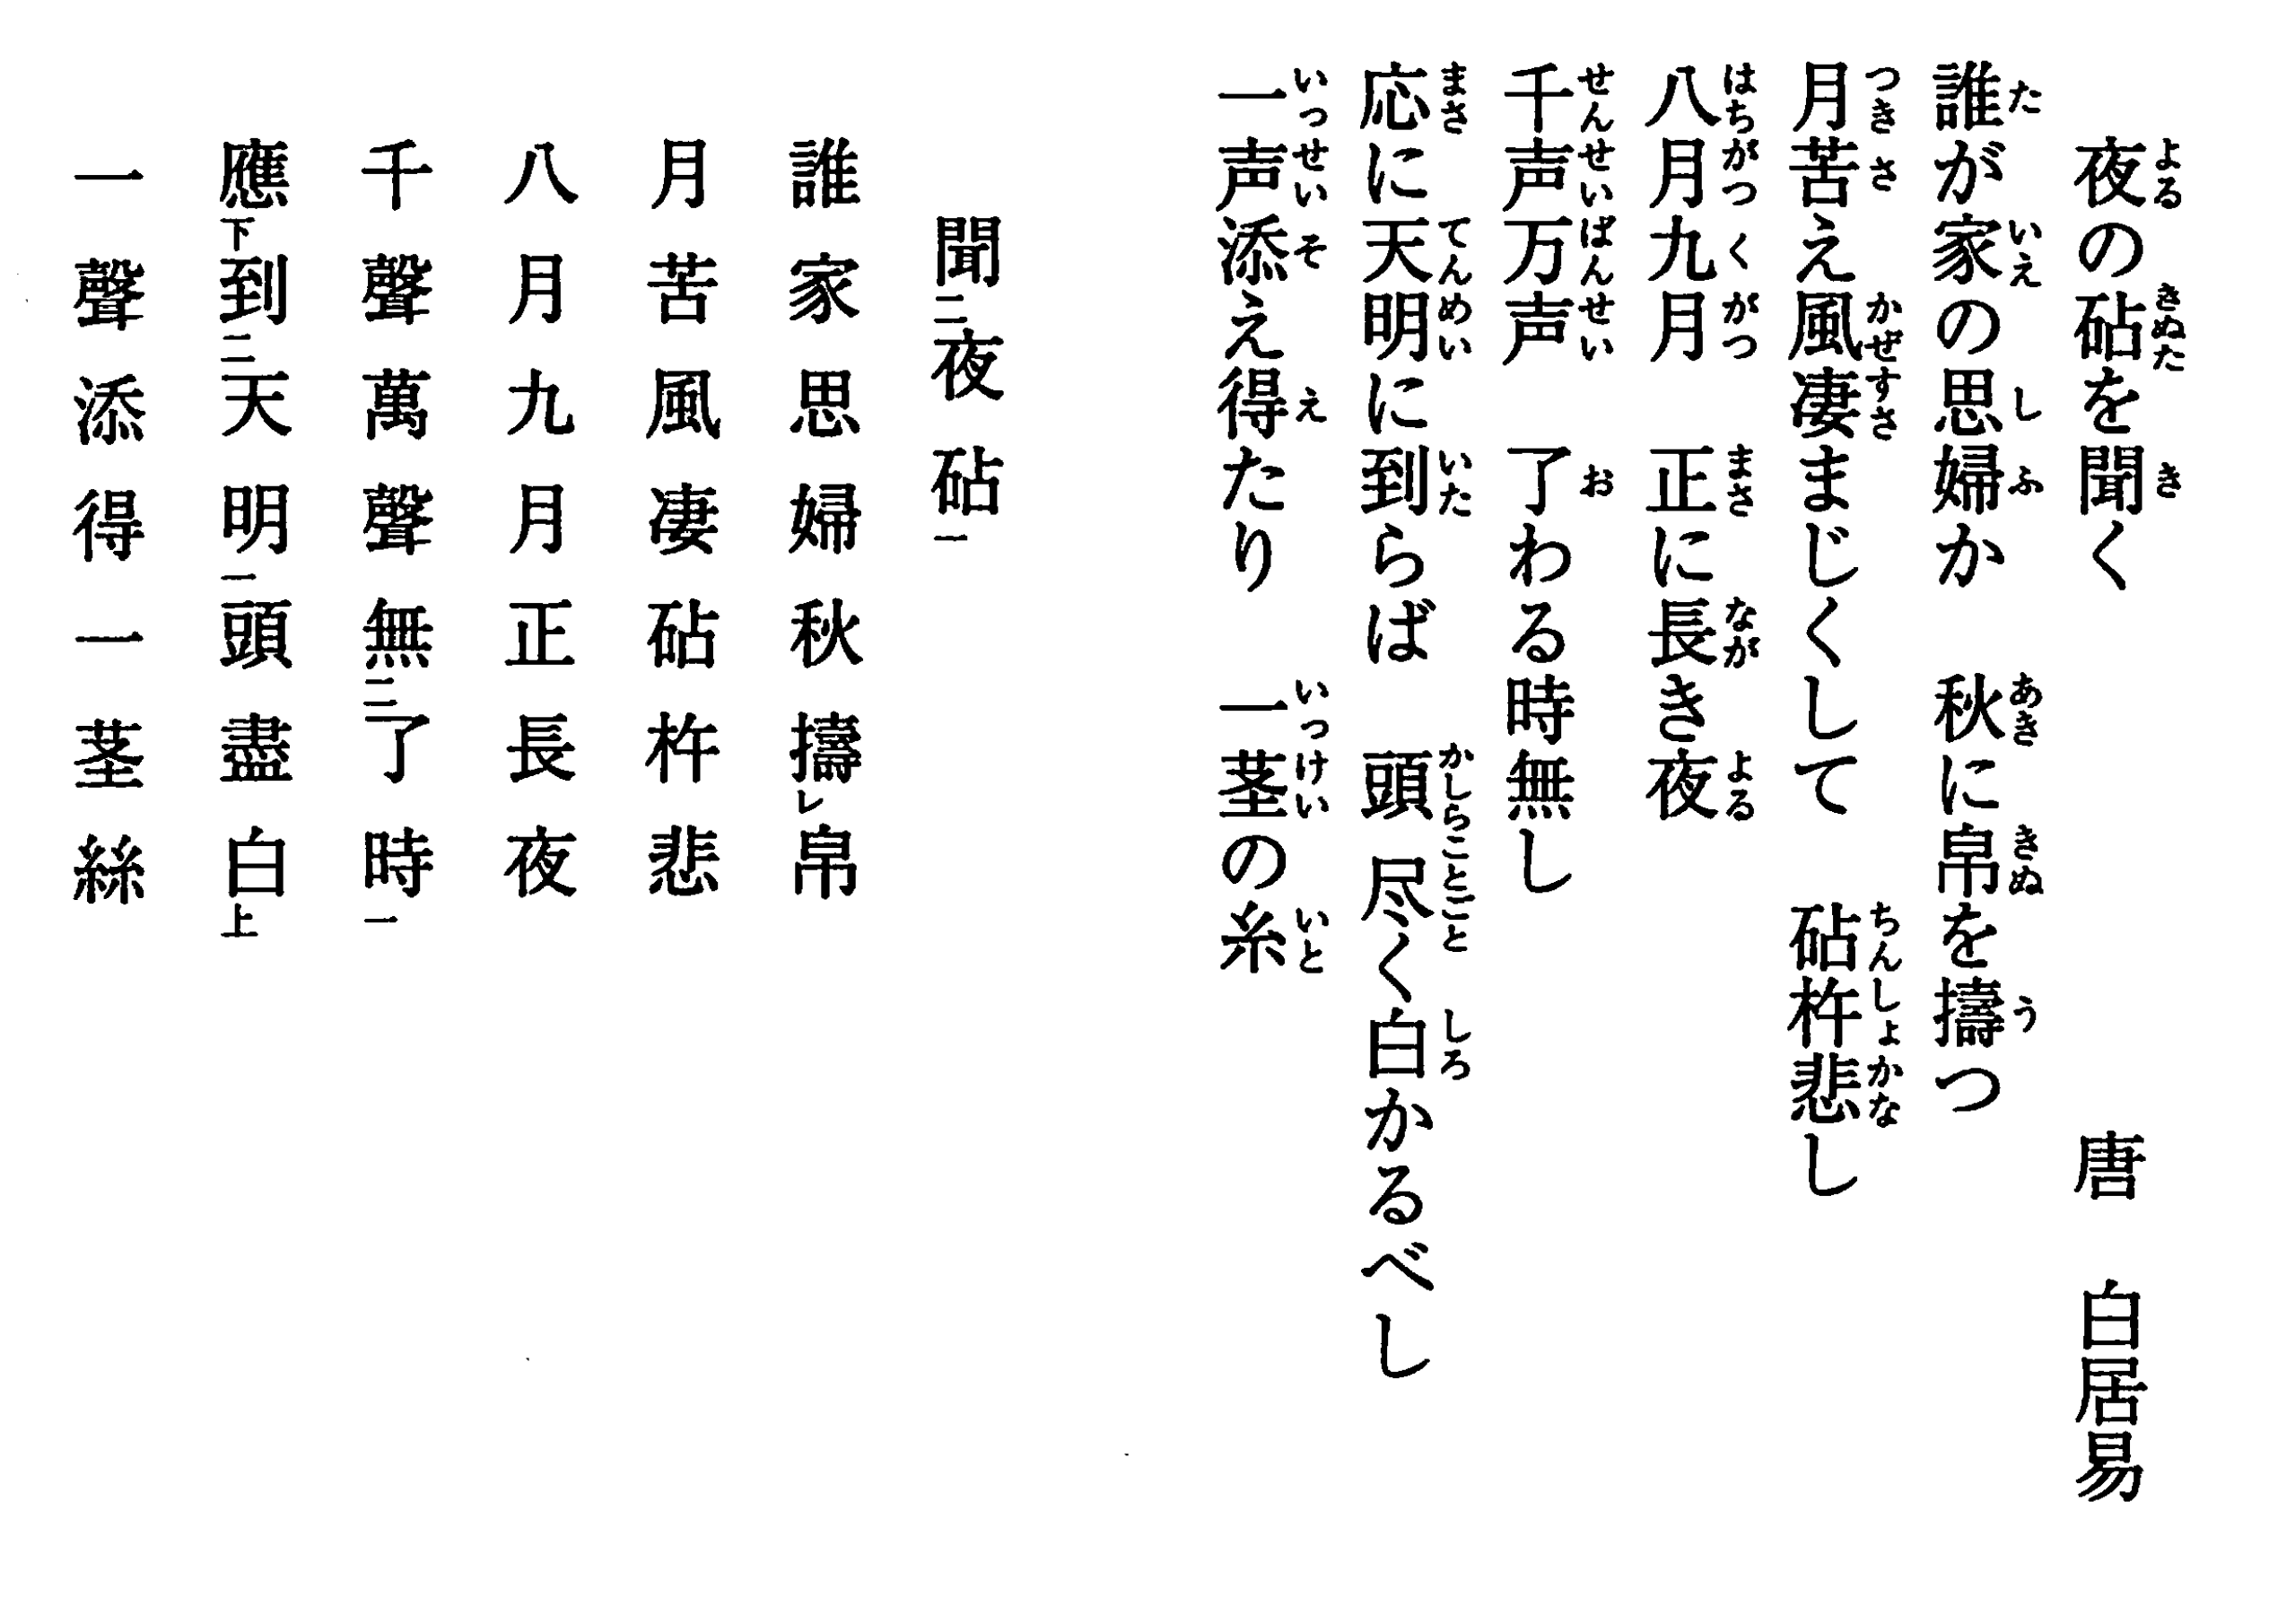 夜の砧を聞く　唐　白居易
誰が家の思婦か　秋に帛を擣つ
月苦え風凄まじくして　砧杵悲し
八月九月　正に長き夜
千声万声　了わる時無し
応に天明に到らば　頭尽く白かるべし
一声添え得たり　一茎の糸
聞二夜砧一
誰家思婦秋擣レ帛
月苦風凄砧杵悲
八月九月正長夜
千聲萬聲無二了時一
應下到二天明一頭盡白上
一聲添得一茎絲